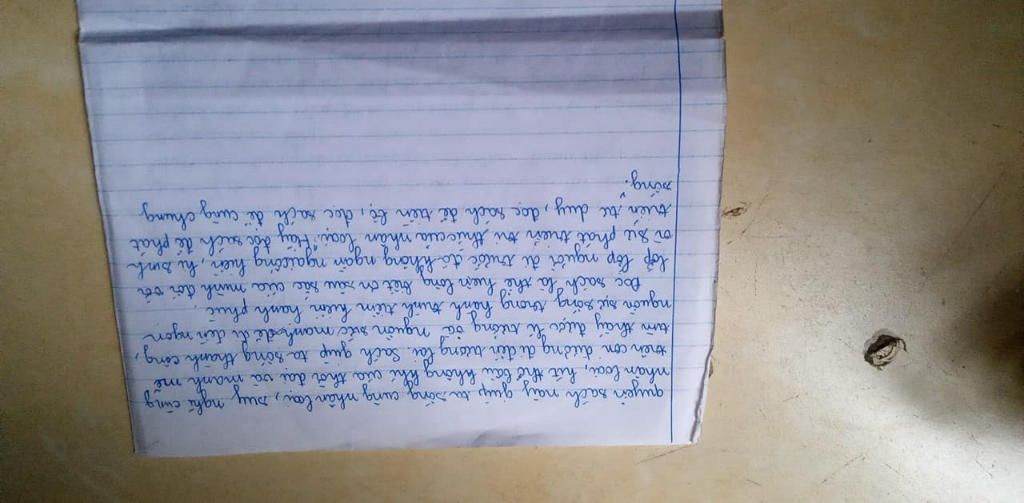 quyển sách này giúp ta sống cùng nhân loại, suy nghĩ cùng
nhân loại, hít thở bầu không khí của thời đại và mạnh mẽ
trên con đường đi đến tương lai. Sách giúp ta sống thành công,
tìm thấy được lí tưởng và nguồn sức mạnh để đi đến ngọn
nguồn sự sống trong hành trình tiến hiên hạnh phúc.
Đọc sách là thể hiện lòng biết ơn sâu sắc của mình đối với
lớp lớp người đi trước đó không ngần ngại cống hiến, hi sinh
vì sự phát triển tri thức của nhân loại. Hãy đọc sách để phát
triển tư duy, đọc sách để tiến bộ, đọc sách để cùng chung
sống.